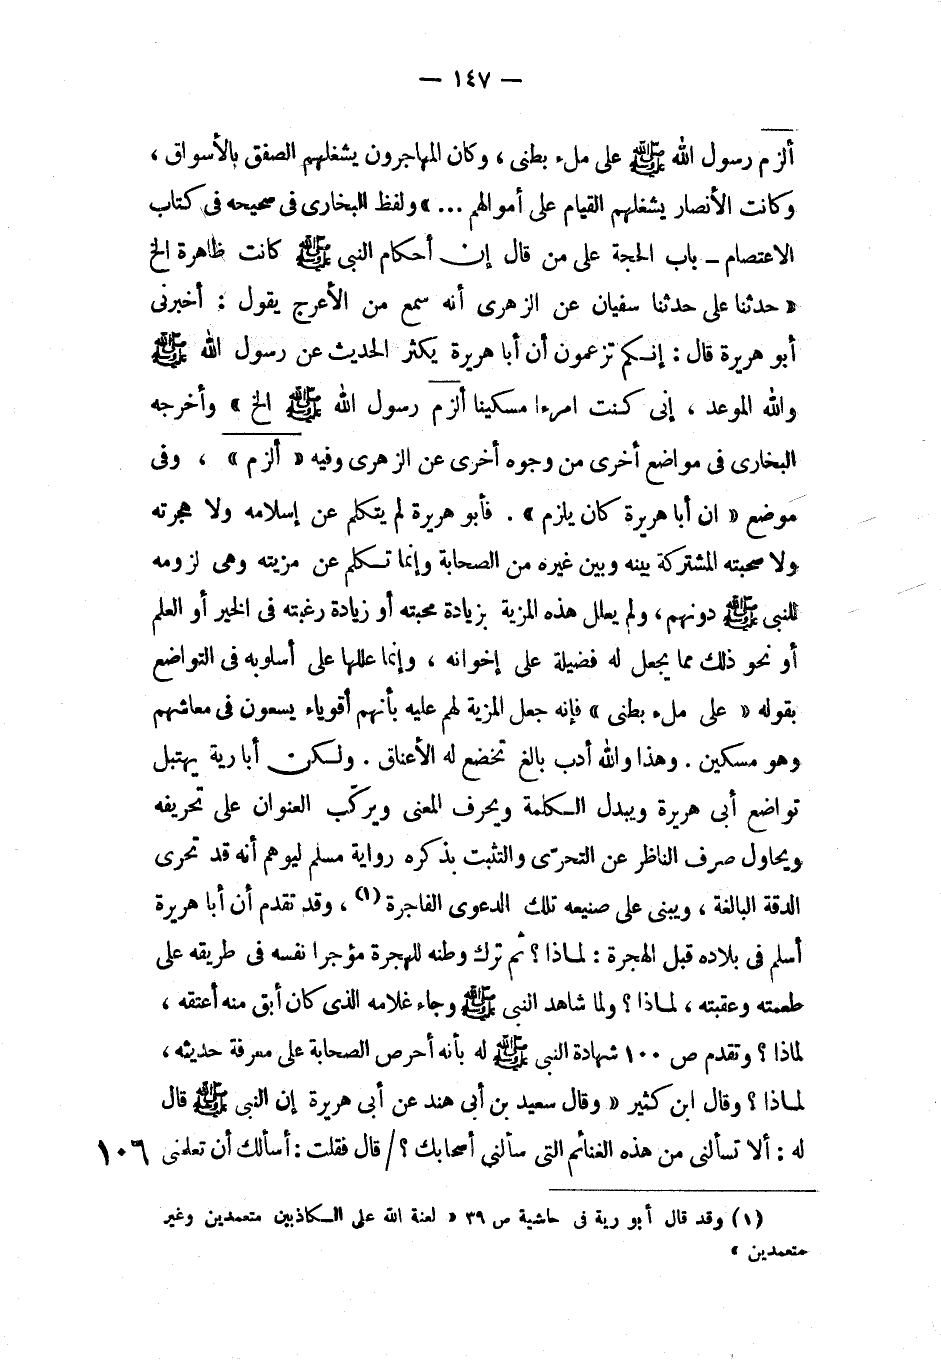 — ١٤٧ —
ألزم رسول الله ﷺ على ملء بطنى ، وكان المهاجرون يشغلهم الصفق بالأسواق ،
وكانت الأنصار يشغلهم القيام على أموالهم ... » ولفظ البخارى فى صحيحه فى كتاب
الاعتصام – باب الحجة على من قال إن أحكام النبى ﷺ كانت ظاهرة الخ
« حدثنا على حدثنا سفيان عن الزهرى أنه سمع من الأعرج يقول : أخبرنى
أبو هريرة قال : إنكم تزعمون أن أبا هريرة يكثر الحديث عن رسول الله ﷺ
والله الموعد ، إنى كنت امرءا مسكينا ألزم رسول الله ﷺ الخ » وأخرجه
البخارى فى مواضع أخرى من وجوه أخرى عن الزهرى وفيه « ألزم » ، وفى
موضع « ان أبا هريرة كان يلزم » . فأبو هريرة لم يتكلم عن إسلامه ولا هجرته
ولا صحبته المشتركة بينه وبين غيره من الصحابة وإنما تكلم عن مزيته وهى لزومه
للنبى ﷺ دونهم ، ولم يعلل هذه المزية بزيادة محبته أو زيادة رغبته فى الخير أو العلم
أو نحو ذلك مما يجعل له فضيلة على إخوانه ، وإنما عللها على أسلوبه فى التواضع
بقوله « على ملء بطنى » فإنه جعل المزية لهم عليه بأنهم أقوياء يسعون فى معاشهم
وهو مسكين . وهذا والله أدب بالغ تخضع له الأعناق . ولكن أبا رية يهتبل
تواضع أبى هريرة ويبدل الكلمة ويحرف المعنى ويركّب العنوان على تحريفه
ويحاول صرف الناظر عن التحرّى والتثبت بذكره رواية مسلم ليوهم أنه قد تحرى
الدقة البالغة ، ويبنى على صنيعه تلك الدعوى الفاجرة (١) ، وقد تقدم أن أبا هريرة
أسلم فى بلاده قبل الهجرة : لماذا ؟ ثم ترك وطنه للهجرة مؤجرا نفسه فى طريقه على
طعمته وعقبته ، لماذا ؟ ولما شاهد النبى ﷺ وجاء غلامه الذى كان أبق منه أعتقه ،
لماذا ؟ وتقدم ص ١٠٠ شهادة النبى ﷺ له بأنه أحرص الصحابة على معرفة حديثه ،
لماذا ؟ وقال ابن كثير « وقال سعيد بن أبى هند عن أبى هريرة إن النبى ﷺ قال
له : ألا تسألنى من هذه الغنائم التى سألنى أصحابك ؟ / قال فقلت : أسألك أن تعلمنى ١٠٦
(١) وقد قال أبو رية فى حاشية ص ٣٩ « لعنة الله على الكاذبين متعمدين وغير
متعمدين »